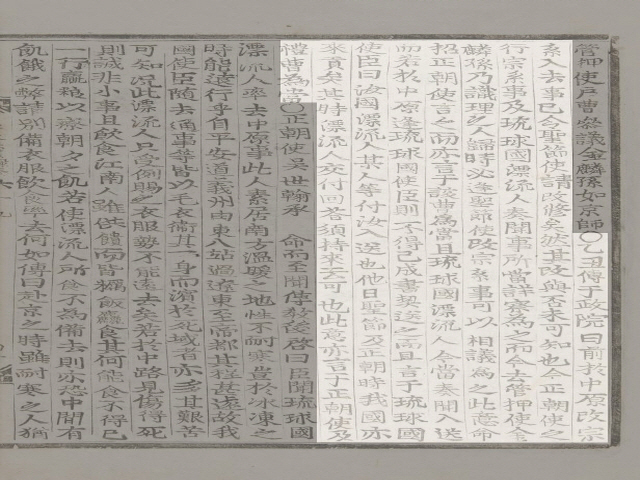 管押使戶曹參議金麟孫如京師○乙丑傳于政院曰前於中原改宗
系入去事已令聖節使請改修矣然其改與否未可知也今正朝使之
行宗系事及琉球國漂流人奏聞事所當詳察爲之而今去管押使金
麟孫乃識理之人歸時必逢聖節使改宗系事可以相議爲之此意命
招正朝使言之而亦言于該曹爲當且琉球國漂流人今當奏聞入送
而若於中原逢琉球國使臣則不得已成書契送之而且言于琉球國
使臣曰汝國漂流人某人等付汝入送也他日聖節及正朝時我國亦
來貢矣其時漂流人交付回答須持來云可也此意亦言于正朝使及
禮曹爲當○正朝使吳世翰承 命而至聞傳教後啓曰臣聞琉球國
漂流人率去中原事此人素居南方溫暖之地性不耐寒豈於冰凍之
時能遠行乎自平安道義州由東八站過遼東至帝都其程甚遠故我
國使臣隨去通事等皆以毛衣衛其一身而濱於死域者亦多其艱苦
可知況此漂流人只受例賜之衣服勢不能遠去矣若於中路見傷得死
則誠非小事且飲食江南人雖供饋而皆糲飯麤食其何能食不得已
一行齎糧以療朝夕之飢若使漂流人所食不爲備去則亦恐中間有
飢餓之弊請別備衣服飲食率去何如傳曰赴京之時雖耐寒之人猶